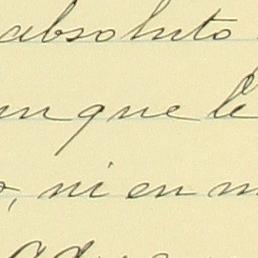 absoluto
un que le
, ni en m